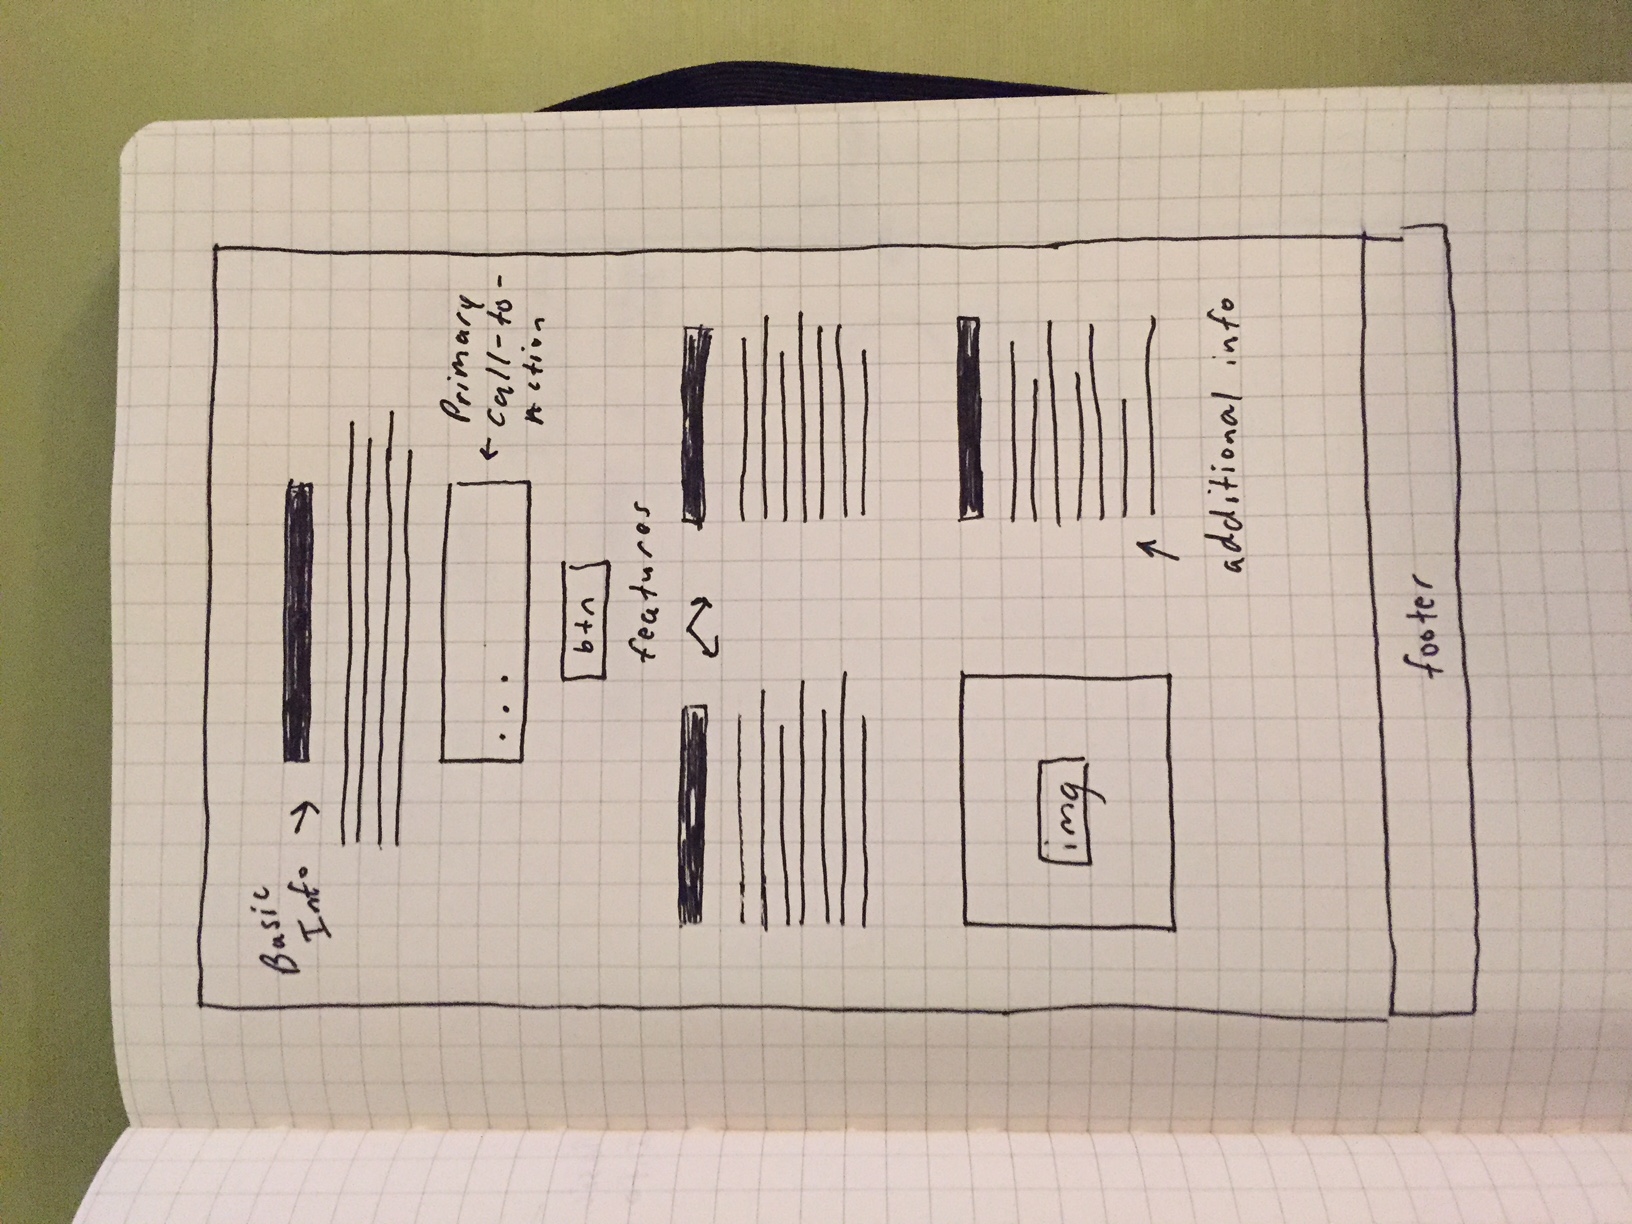 Basic
Info
Primary
Call-to-
Action
. . .
btn
features
img
additional info
footer